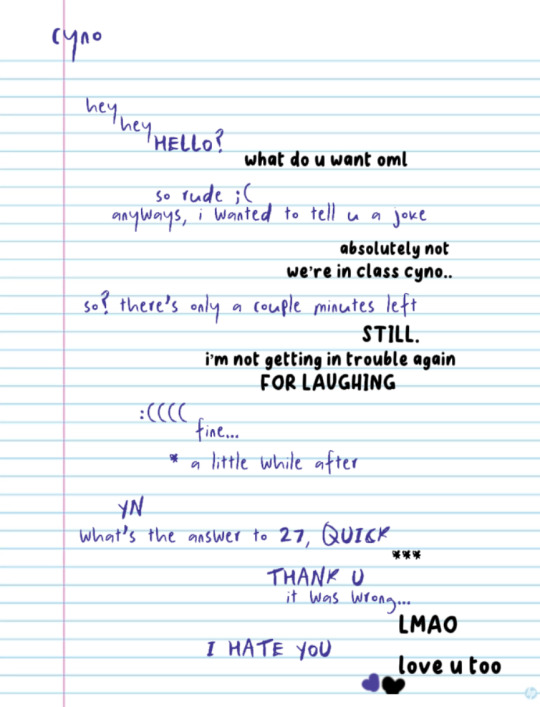 cyno
hey
hey
HELLO?
what do u want oml
so rude ;(
anyways, i wanted to tell u a joke
absolutely not
we're in class cyno..
so? there's only a couple minutes left
STILL.
i'm not getting in trouble again
FOR LAUGHING
:((((
fine...
* a little while after
YN
what's the answer to 27, QUICK
***
THANK U
it was wrong...
LMAO
I HATE YOU
love u too